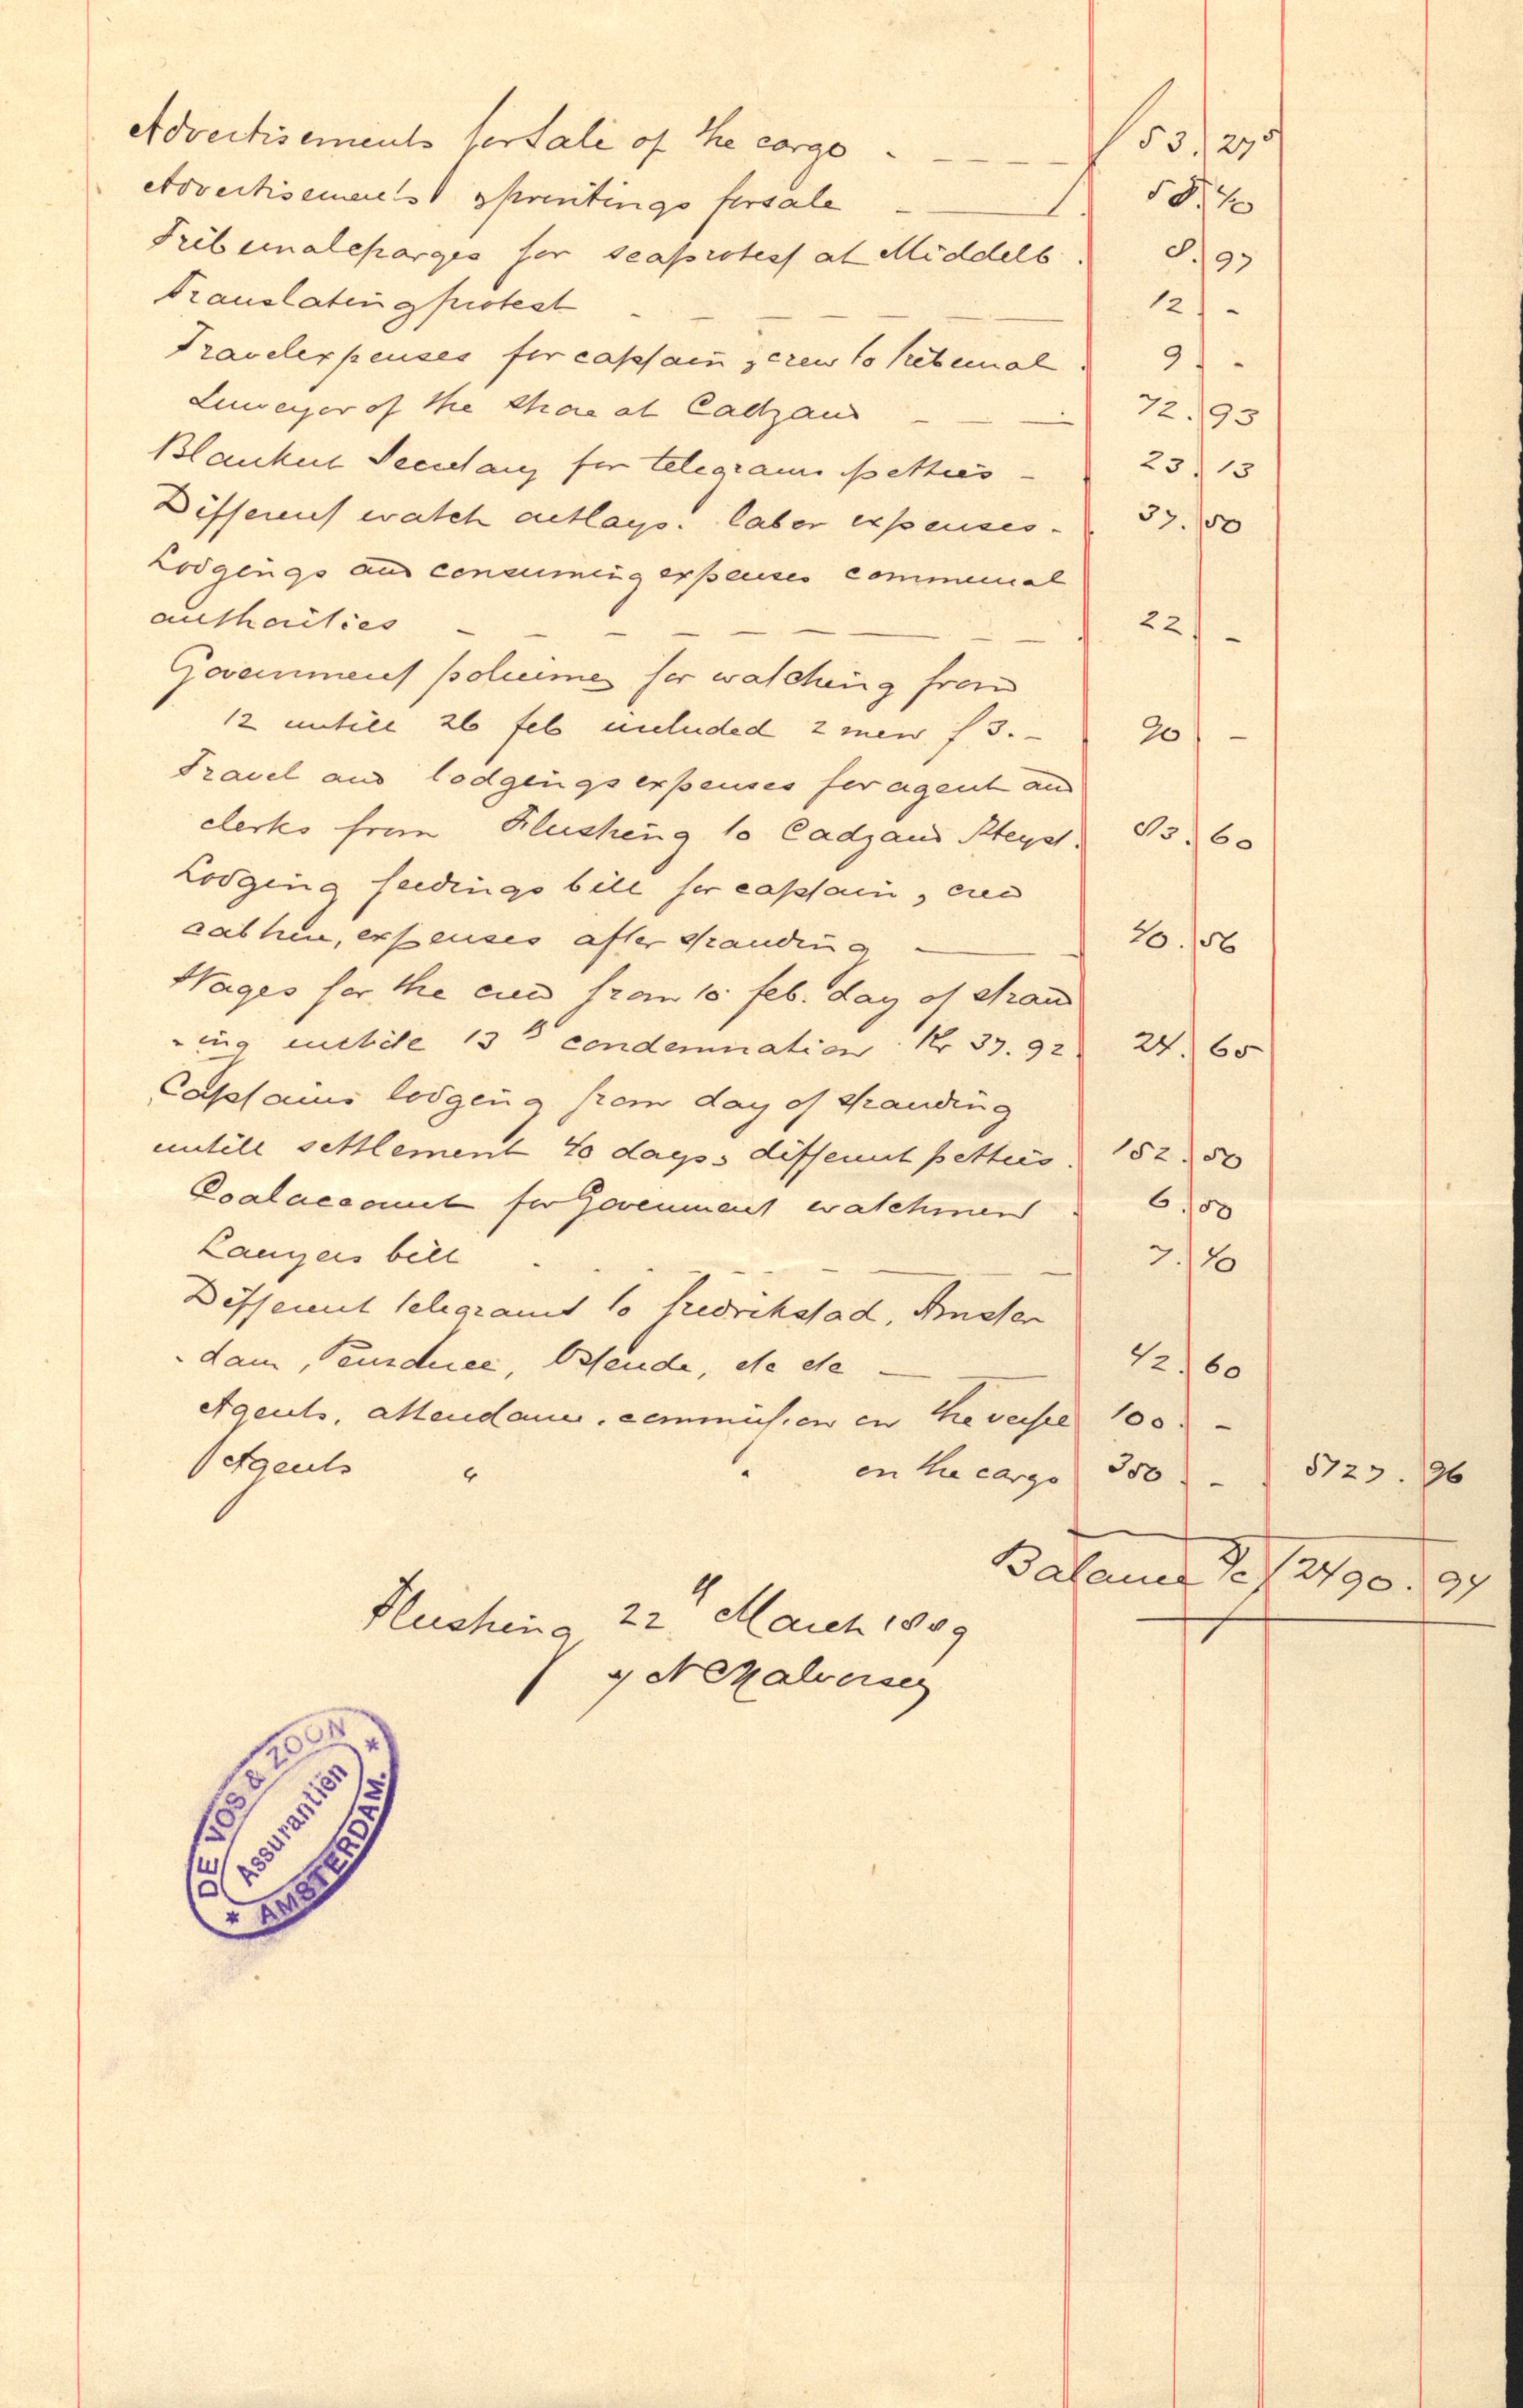 Advertisements for Sale of the cargo - f 53.27⁵
Advertisements & printings for sale - 58.40
Tribunalcharges for seaprotest at Middelb. 8.97
Translating protest 12. -
Travelexpenses for captain & crew to tribunal 9. -
of the shore at Cadzand 72.93
Secretary for telegrams petties - 23.13
Different watch outlays. labor expenses - 37.50
Lodgings and consuming expenses communal
authorities 22. -
Government for watching from
12 untill 26 feb included 2 men f 3. - 90. -
Travel and lodgings expenses for agent and
clerks from Flushing to Cadzand 83.60
Lodging feedings bill for captain, crew
expenses after stranding - 40.56
Wages for the crew from 10 feb. day of strand
-ing untile 13th condemnation Kr 37.92 24.65
Captains lodging from day of stranding
untill settlement 40 days & different petties. 152.50
Coalaccount for Government watchmen 6.50
Lawyers bill 7.40
Different telegrams to Fredrikstad, Amster
-dam, Ostende, etc etc - 42.60
Agents, attendance, commission on the vessel 100. -
Agents " " on the cargo 350. - 5723.96
Balance f 2490.94
Flushing 22 March 1889
DE VOS & ZOON
Assurantiën
* AMSTERDAM. *